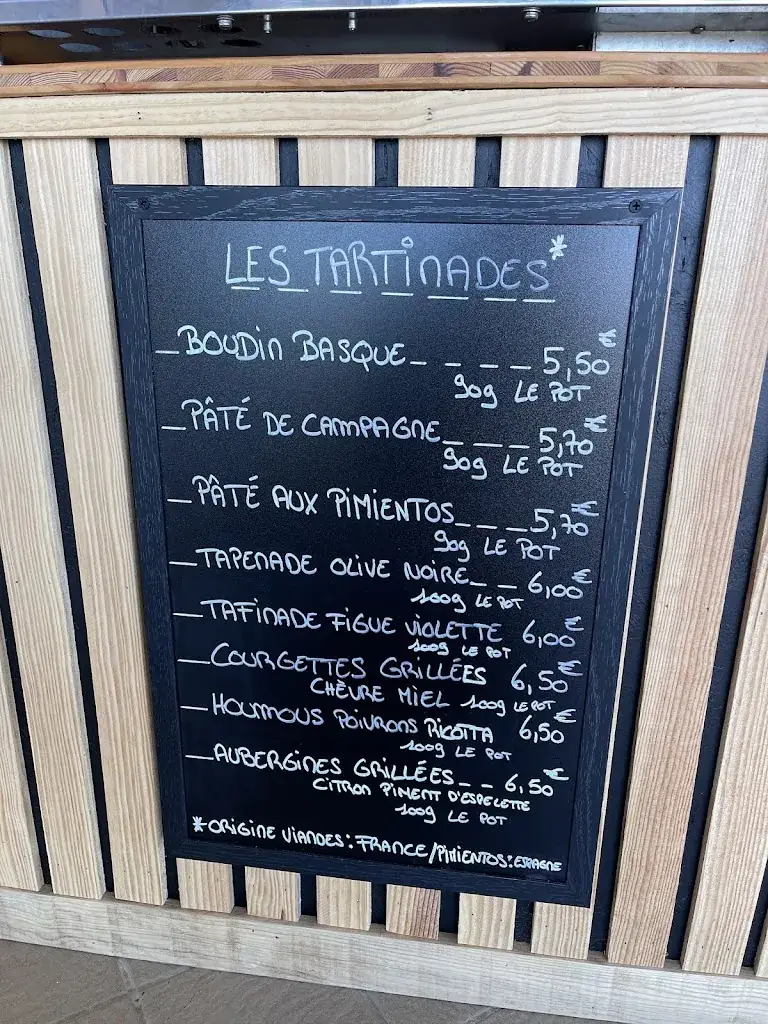 LES TARTINADES*
_BOUDIN BASQUE_ _ _ _ 5,50€
90g LE POT
_PÂTÉ DE CAMPAGNE_ _ _ _ 5,70€
90g LE POT
_PÂTÉ AUX PIMIENTOS_ _ _ _ 5,70€
90g LE POT
_TAPENADE OLIVE NOIRE_ _ _ 6,00€
100g LE POT
_TAFINADE FIGUE VIOLETTE 6,00€
100g LE POT
_COURGETTES GRILLÉES 6,50€
CHÈVRE MIEL 100g LE POT
_HOUMOUS POIVRONS RICOTTA 6,50€
100g LE POT
_AUBERGINES GRILLÉES_ _ _ 6,50€
CITRON PIMENT D'ESPELETTE
100g LE POT
*ORIGINE VIANDES: FRANCE/PIMIENTOS: ESPAGNE